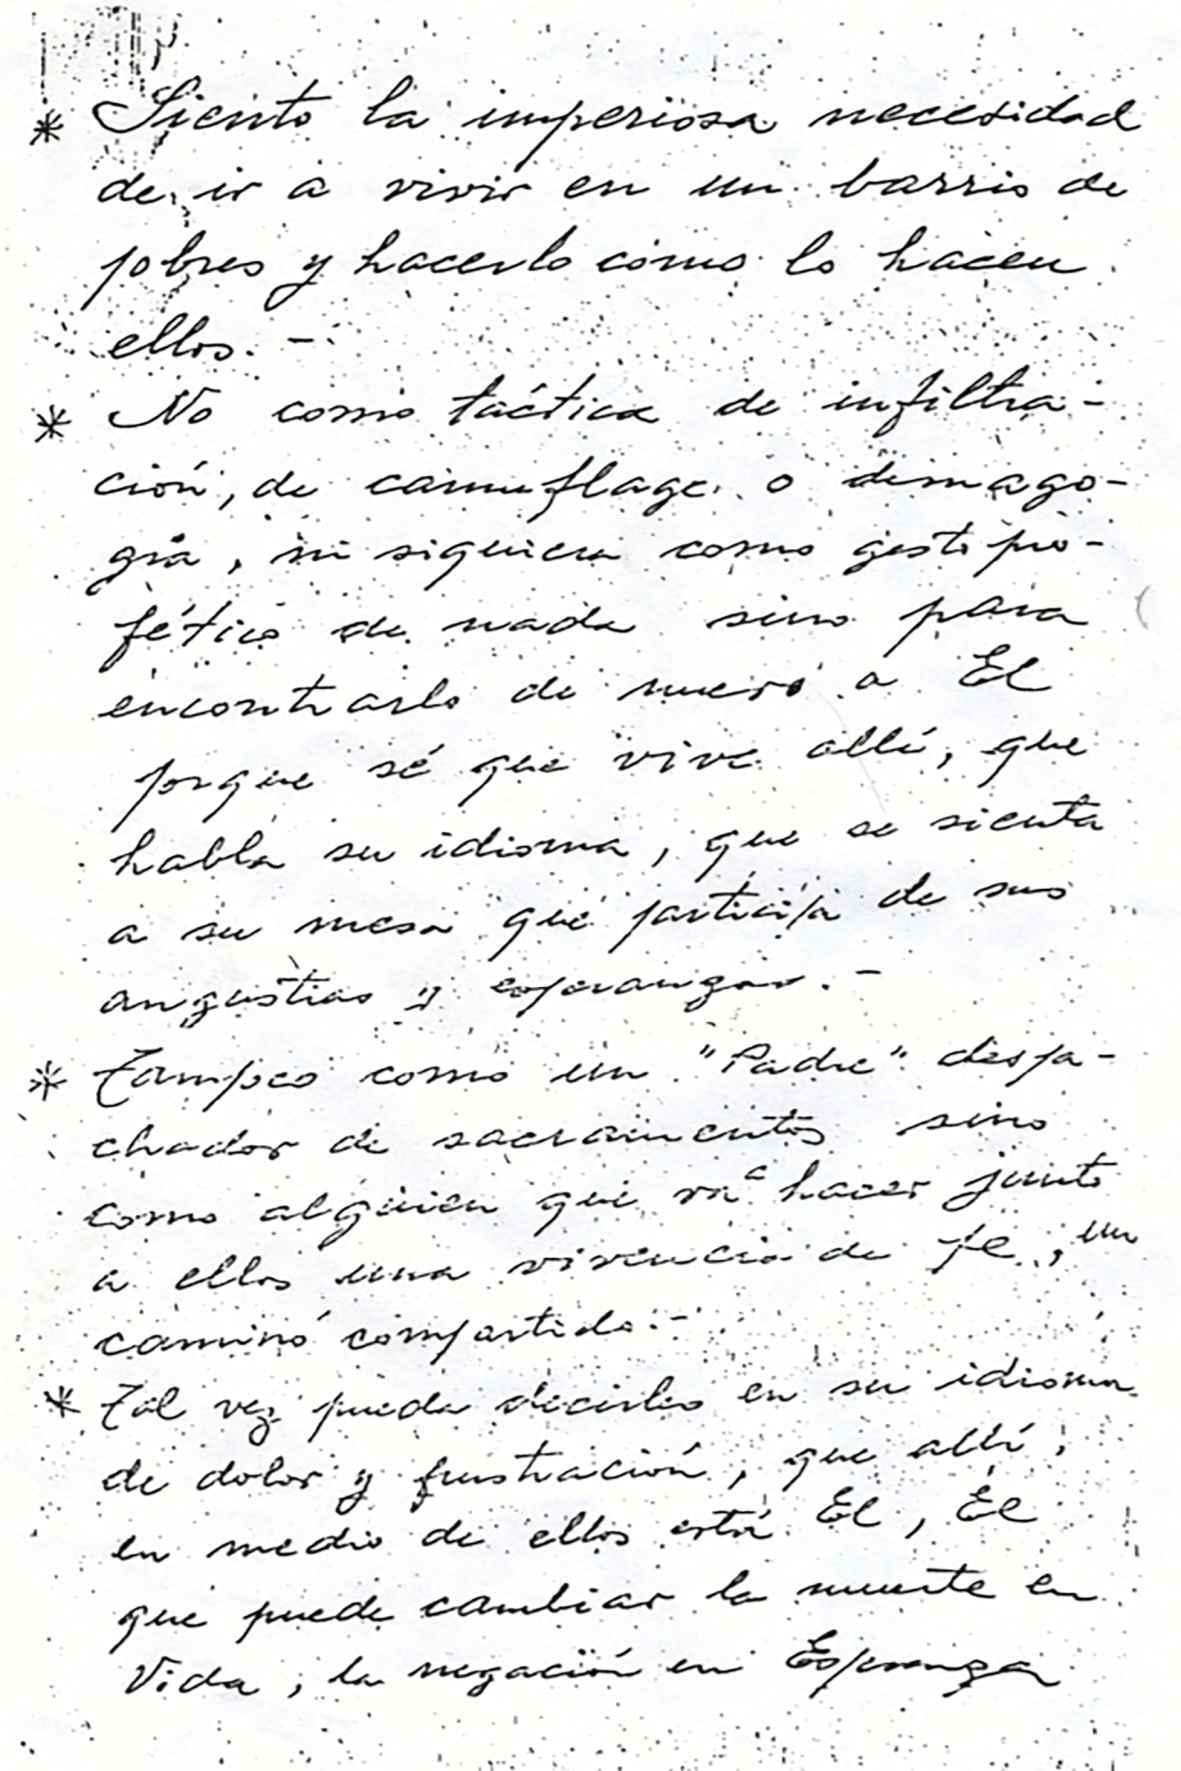 * Siento la imperiosa necesidad
de ir a vivir en un barrio de
pobres y hacerlo como lo hacen
ellos. -
* No como táctica de infiltra-
ción, de camuflage o demago-
gia, ni siquiera como gesto pro-
fético de nada sino para
encontrarlo de nuevo a El
porque sé que vive allí, que
habla su idioma, que se sienta
a su mesa que participa de sus
angustias y esperanzas. -
* Tampoco como un "Padre" despa-
chador de sacramentos sino
como alguien que va a hacer junto
a ellos una vivencia de fe, un
camino compartido. -
* Tal vez pueda decirles en su idioma
de dolor y frustración, que allí,
en medio de ellos está El, El
que puede cambiar la muerte en
Vida, la negación en Esperanza